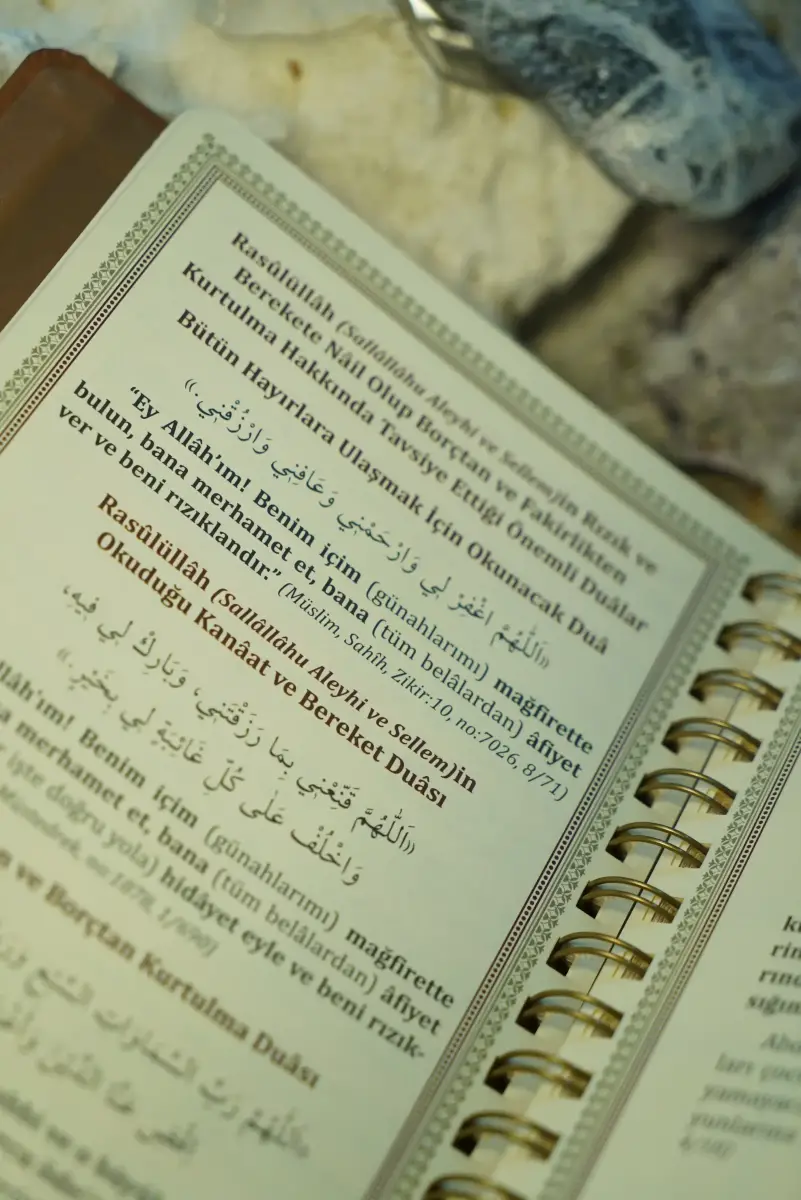 Rasûlüllâh (Sallâllâhu Aleyhi ve Sellem)in Rızık ve
Berekete Nâil Olup Borçtan ve Fakirlikten
Kurtulma Hakkında Tavsiye Ettiği Önemli Duâlar
Bütün Hayırlara Ulaşmak İçin Okunacak Duâ
«اَللّٰهُمَّ اغْفِرْ لِي وَارْحَمْنِي وَعَافِنِي وَارْزُقْنِي.»
“Ey Allâh'ım! Benim için (günahlarımı) mağfirette
bulun, bana merhamet et, bana (tüm belâlardan) âfiyet
ver ve beni rızıklandır.” (Müslim, Sahîh, Zikir:10, no:7026, 8/71)
Rasûlüllâh (Sallâllâhu Aleyhi ve Sellem)in
Okuduğu Kanâat ve Bereket Duâsı
«اَللّٰهُمَّ قَنِّعْنِي بِمَا رَزَقْتَنِي، وَبَارِكْ لِي فِيهِ،
وَاخْلُفْ عَلَى كُلِّ غَائِبَةٍ لِي بِخَيْرٍ.»
llâh'ım! Benim için (günahlarımı) mağfirette
merhamet et, bana (tüm belâlardan) âfiyet
işte doğru yola) hidâyet eyle ve beni rızık-
no:1878, 1/690)
ve Borçtan Kurtulma Duâsı
«اَللّٰهُمَّ رَبَّ السَّمَاوَاتِ السَّبْعِ
rin
rınd
sığın